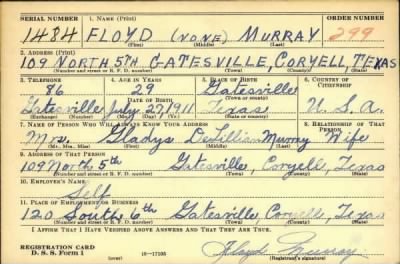 SERIAL NUMBER 1. NAME (Print) ORDER NUMBER
1484 FLOYD (NONE) MURRAY 299
(First) (Middle) (Last)
2. ADDRESS (Print)
109 NORTH 5TH GATESVILLE, CORYELL, TEXAS
(Number and street or R. F. D. number) (Town) (County) (State)
3. TELEPHONE 4. AGE IN YEARS 5. PLACE OF BIRTH 6. COUNTRY OF CITIZENSHIP
86 29 Gatesville
DATE OF BIRTH (Town or county)
Gatesville July 22, 1911 Texas U.S.A.
(Exchange) (Number) (Mo.) (Day) (Yr.) (State or country)
7. NAME OF PERSON WHO WILL ALWAYS KNOW YOUR ADDRESS 8. RELATIONSHIP OF THAT PERSON
Mrs. Gladys Murray Wife
(Mr., Mrs., Miss) (First) (Middle) (Last)
9. ADDRESS OF THAT PERSON
109 North 5th Gatesville, Coryell, Texas
(Number and street or R. F. D. number) (Town) (County) (State)
10. EMPLOYER'S NAME
Self
11. PLACE OF EMPLOYMENT OR BUSINESS
120 South 6th Gatesville, Coryell, Texas
(Number and street or R. F. D. number) (Town) (County) (State)
I AFFIRM THAT I HAVE VERIFIED ABOVE ANSWERS AND THAT THEY ARE TRUE.
REGISTRATION CARD
D. S. S. Form 1 16—17105 Floyd Murray
(Registrant's signature)